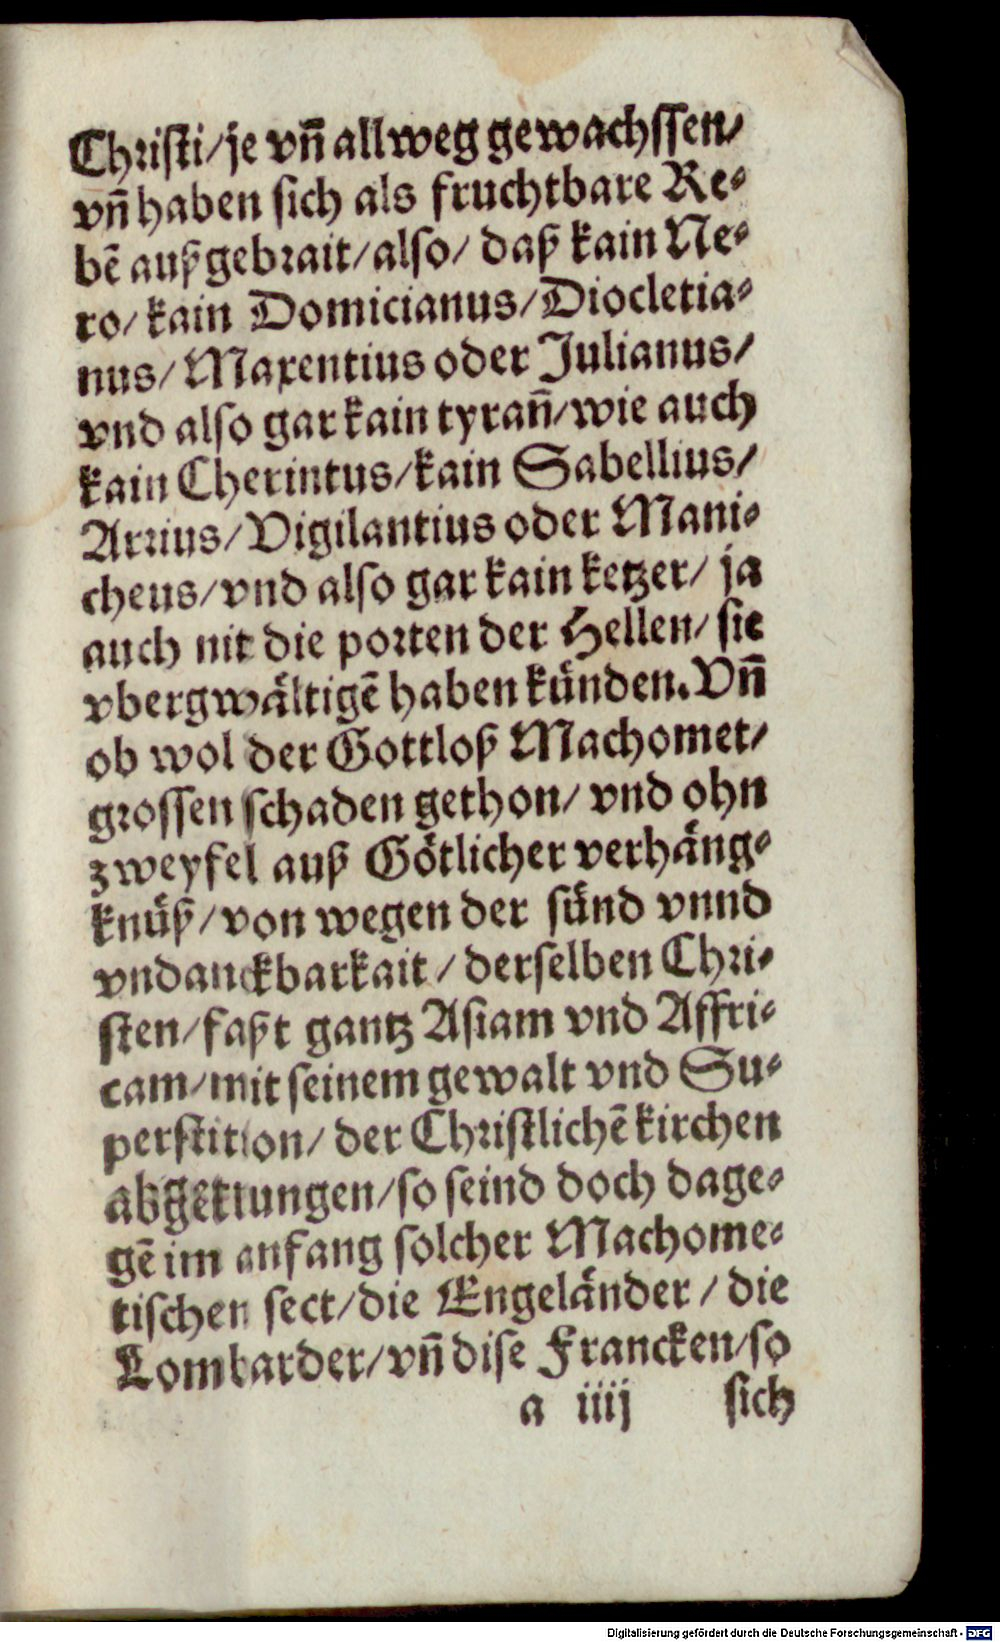 Christi/je vñ allweg gewachssen/
vñ haben sich als fruchtbare Re-
bē außgebrait/also/ daß kain Ne-
ro/ kain Domicianus/Diocletia-
nus/ Maxentius oder Julianus/
vnd also gar kain tyrañ/wie auch
kain Cherintus/kain Sabellius/
Arrius/Vigilantius oder Mani-
cheus/vnd also gar kain ketzer/ ja
auch nit die porten der Hellen/ sie
vbergwältigē haben künden. Vñ
ob wol der Gottloß Machomet/
grossen schaden gethon/ vnd ohn
zweyfel auß Götlicher verhäng-
knüß/von wegen der sünd vnnd
vndanckbarkait / derselben Chri-
sten/faßt gantz Asiam vnd Affri-
cam/mit seinem gewalt vnd Su-
perstition/ der Christlichē kirchen
abgetrungen/so seind doch dage-
gē im anfang solcher Machome-
tischen sect/die Engeländer / die
Lombarder/vñ dise Francken/so
a iiij sich
Digitalisierung gefördert durch die Deutsche Forschungsgemeinschaft - DFG